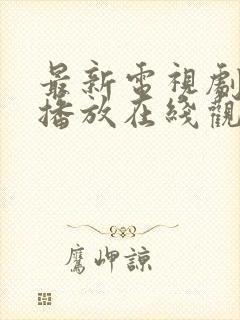 最新電視劇
播放在綫觀
鷹岬諒